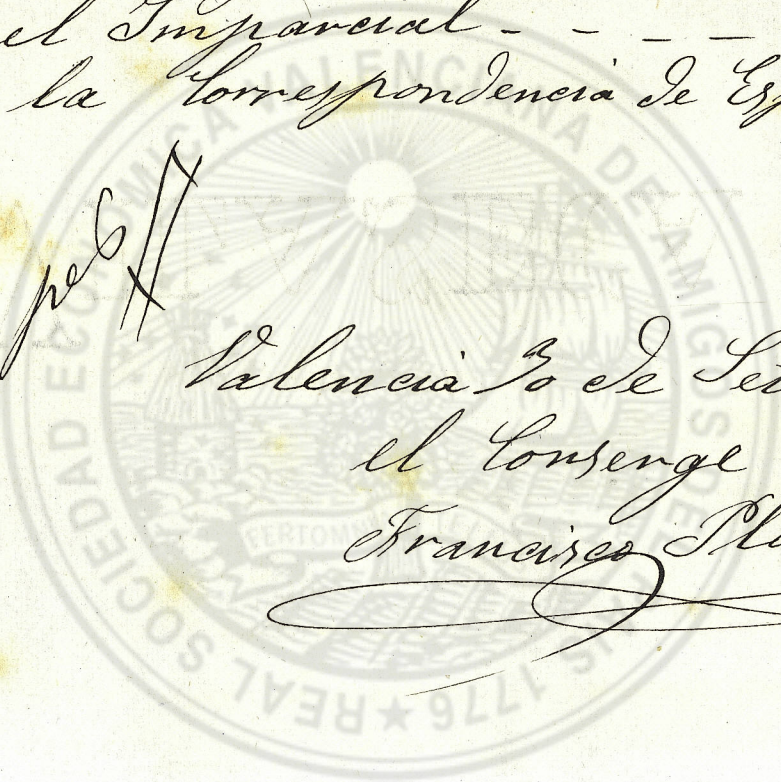 el Imparcial - - - -
la Correspondencia de Esp
Valencia 30 de Set
el Conserge
Francisco Pla
REAL SOCIEDAD ECONÓMICA VALENCIANA DE AMIGOS DEL PAÍS 1776
FERT OMNIA TELLUS